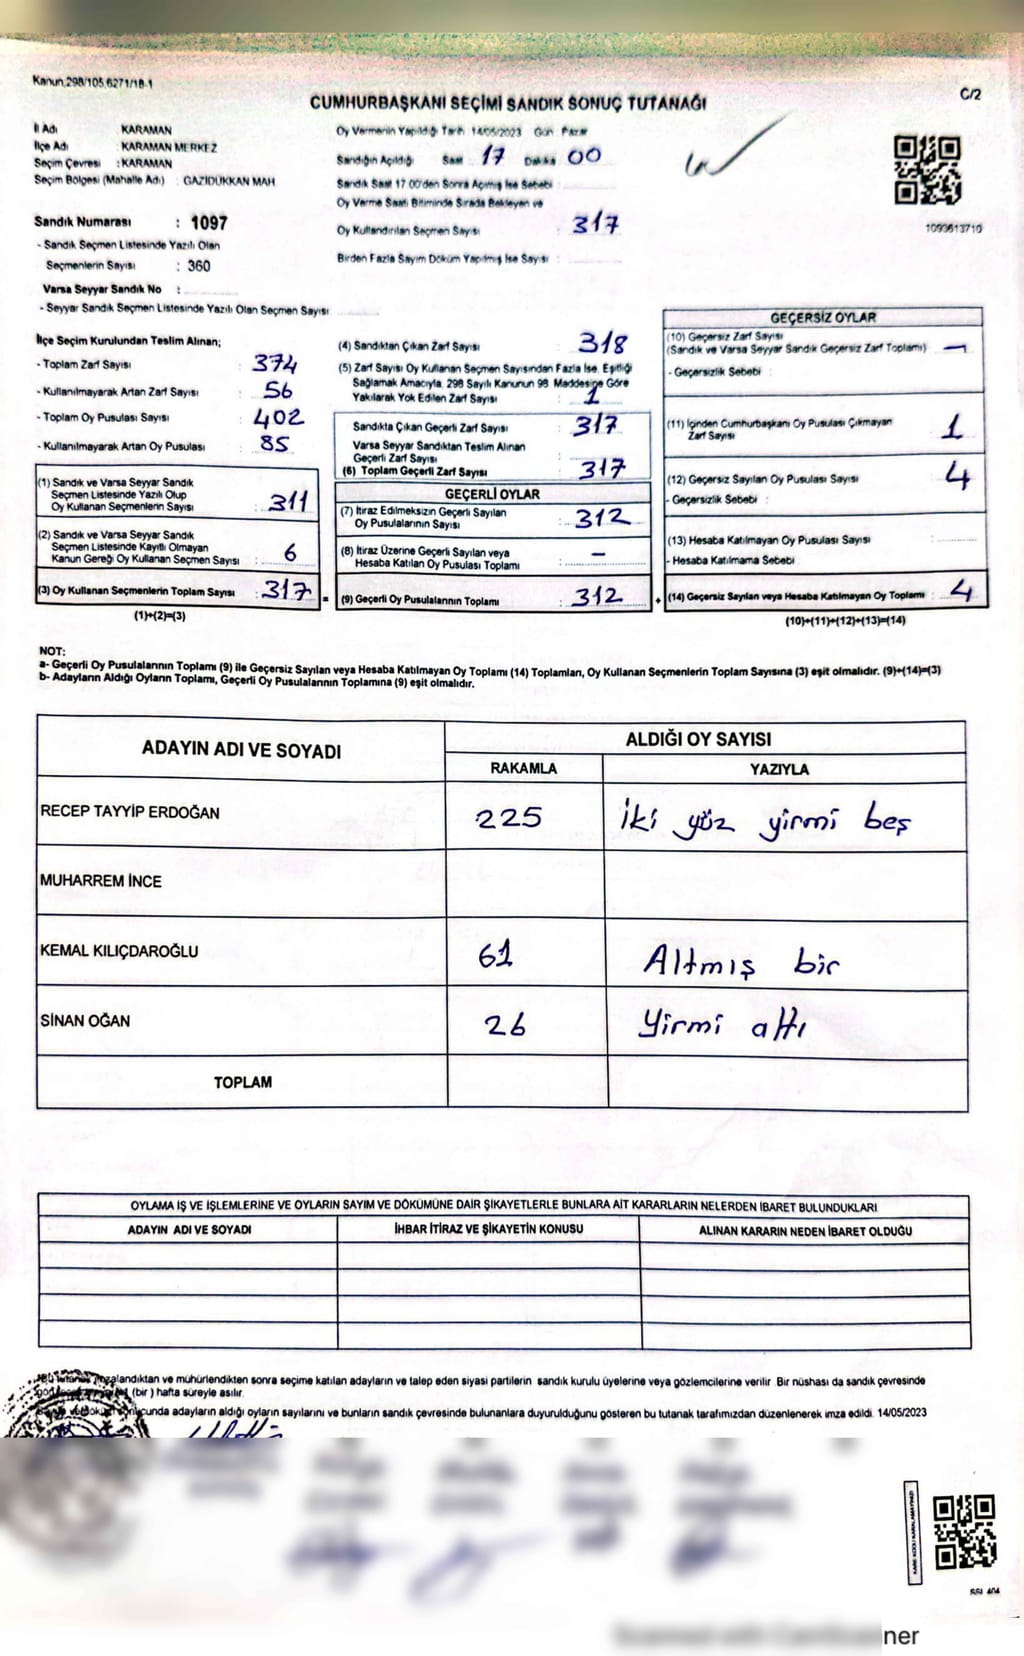 Kanun,298/105,6271/18-1
C/2
CUMHURBAŞKANI SEÇİMİ SANDIK SONUÇ TUTANAĞI
İl Adı KARAMAN
İlçe Adı KARAMAN MERKEZ
Seçim Çevresi : KARAMAN
Seçim Bölgesi (Mahalle Adı) : GAZİDÜKKAN MAH
Oy Vermenin Yapıldığı Tarih 14/05/2023 Gün Pazar
Sandığın Açıldığı Saat 17 Dakika 00
Sandık Saat 17 00'den Sonra Açımış İse Sebebi :
Oy Verme Saati Bitiminde Sırada Bekleyen ve
Oy Kullandırılan Seçmen Sayısı : 317
Birden Fazla Sayım Döküm Yapılmış İse Sayısı :
1093613710
Sandık Numarası : 1097
- Sandık Seçmen Listesinde Yazılı Olan
Seçmenlerin Sayısı : 360
Varsa Seyyar Sandık No :
- Seyyar Sandık Seçmen Listesinde Yazılı Olan Seçmen Sayısı
İlçe Seçim Kurulundan Teslim Alınan;
- Toplam Zarf Sayısı : 374
- Kullanılmayarak Artan Zarf Sayısı : 56
- Toplam Oy Pusulası Sayısı : 402
- Kullanılmayarak Artan Oy Pusulası : 85
(1) Sandık ve Varsa Seyyar Sandık
Seçmen Listesinde Yazılı Olup
Oy Kullanan Seçmenlerin Sayısı : 311
(2) Sandık ve Varsa Seyyar Sandık
Seçmen Listesinde Kayıtlı Olmayan
Kanun Gereği Oy Kullanan Seçmen Sayısı : 6
(3) Oy Kullanan Seçmenlerin Toplam Sayısı : 317 =
(1)+(2)=(3)
(4) Sandıktan Çıkan Zarf Sayısı : 318
(5) Zarf Sayısı Oy Kullanan Seçmen Sayısından Fazla İse, Eşitliği
Sağlamak Amacıyla, 298 Sayılı Kanunun 98 Maddesine Göre
Yakılarak Yok Edilen Zarf Sayısı 1
Sandıkta Çıkan Geçerli Zarf Sayısı : 317
Varsa Seyyar Sandıktan Teslim Alınan
Geçerli Zarf Sayısı :
(6) Toplam Geçerli Zarf Sayısı : 317
GEÇERLİ OYLAR
(7) İtiraz Edilmeksizin Geçerli Sayılan
Oy Pusulalarının Sayısı : 312
(8) İtiraz Üzerine Geçerli Sayılan veya
Hesaba Katılan Oy Pusulası Toplamı : –
(9) Geçerli Oy Pusulalarının Toplamı : 312 +
GEÇERSİZ OYLAR
(10) Geçersiz Zarf Sayısı
(Sandık ve Varsa Seyyar Sandık Geçersiz Zarf Toplamı) : –
- Geçersizlik Sebebi :
(11) İçinden Cumhurbaşkanı Oy Pusulası Çıkmayan
Zarf Sayısı 1
(12) Geçersiz Sayılan Oy Pusulası Sayısı 4
- Geçersizlik Sebebi :
(13) Hesaba Katılmayan Oy Pusulası Sayısı :
- Hesaba Katılmama Sebebi
(14) Geçersiz Sayılan veya Hesaba Katılmayan Oy Toplamı : 4
(10)+(11)+(12)+(13)=(14)
NOT:
a- Geçerli Oy Pusulalarının Toplamı (9) ile Geçersiz Sayılan veya Hesaba Katılmayan Oy Toplamı (14) Toplamları, Oy Kullanan Seçmenlerin Toplam Sayısına (3) eşit olmalıdır. (9)+(14)=(3)
b- Adayların Aldığı Oyların Toplamı, Geçerli Oy Pusulalarının Toplamına (9) eşit olmalıdır.
ADAYIN ADI VE SOYADI
ALDIĞI OY SAYISI
RAKAMLA YAZIYLA
RECEP TAYYİP ERDOĞAN 225 İki yüz yirmi beş
MUHARREM İNCE
KEMAL KILIÇDAROĞLU 61 Altmış bir
SİNAN OĞAN 26 Yirmi altı
TOPLAM
OYLAMA İŞ VE İŞLEMLERİNE VE OYLARIN SAYIM VE DÖKÜMÜNE DAİR ŞİKAYETLERLE BUNLARA AİT KARARLARIN NELERDEN İBARET BULUNDUKLARI
ADAYIN ADI VE SOYADI İHBAR İTİRAZ VE ŞİKAYETİN KONUSU ALINAN KARARIN NEDEN İBARET OLDUĞU
tutanak imzalandıktan ve mühürlendikten sonra seçime katılan adayların ve talep eden siyasi partilerin sandık kurulu üyelerine veya gözlemcilerine verilir Bir nüshası da sandık çevresinde
(bir) hafta süreyle asılır
adayların aldığı oyların sayılarını ve bunların sandık çevresinde bulunanlara duyurulduğunu gösteren bu tutanak tarafımızdan düzenlenerek imza edildi. 14/05/2023